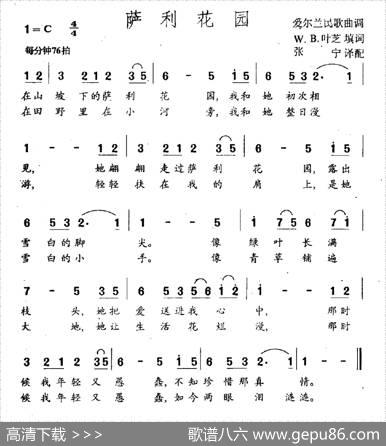 萨利花园
1=C 4/4
每分钟76拍
爱尔兰民歌曲调
W.B.叶芝 填词
张宁 译配
12 3 2 12 35 | 6 - 5 15 | 6 5 532 1
在山坡下的萨利花园,我和她初次相
在田野里在小河旁,我和她整日漫
1 - - 12 | 3 2 12 35 | 6 - 5 15
见,她翩翩走过萨利花园,露出
游,轻轻扶在我的肩上,是她
6 532 2 1 | 1 - 5 | 1 7 5 6 7 5
雪白的脚尖。像绿叶长满
雪白的小手。像青草铺遍
枝头,她把爱送进我心中,那时
大地,她让生活花烂漫,那时
3 2 12 35 | 6 - 5 15 | 6 532 2 1 | 1 - -
候我年轻又愚蠢,不知珍惜那真情。
候我年轻又愚蠢,如今两眼泪涟涟。
高清下载 >>> 歌谱八六 www.gepu86.com